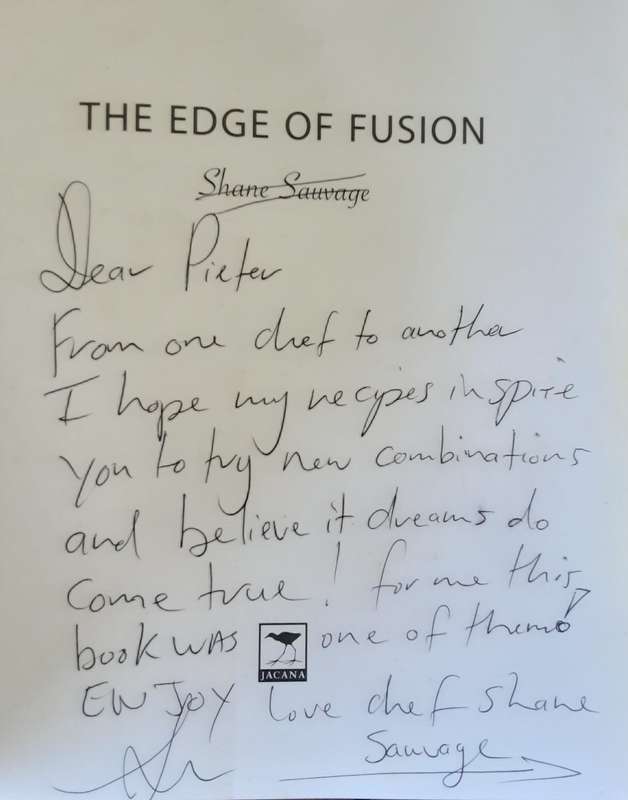 THE EDGE OF FUSION
Shane Sauvage
Dear Pieter
From one chef to another
I hope my recipes inspire
you to try new combinations
and believe it dreams do
come true! for me this
book was JACANA one of them!
ENJOY love chef Shane
Sauvage